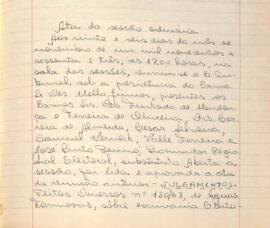 Ata da sessão ordinária
Aos vinte e seis dias do mês de
novembro de um mil novecentos e
sessenta e três, às 17,00 horas, na
sala das sessões, reuniu-se o Tri-
bunal, sob a presidência do Exmo.
Sr. Des. Mello, presentes os
Exmos. Srs. Des. Furtado de Mendon-
ça e Ferreira de Oliveira, Drs. Cor-
rêa de Almeida, Cesar Silveira,
Samuel Werneck, Valle Ferreira e
José Pinto Procurador Regio-
nal Eleitoral, substituto. Aberta a
sessão, foi lida e aprovada a ata
da reunião anterior. - JULGAMENTOS -
Feitos Diversos nº 130/63, de Águas
Formosas, sôbre